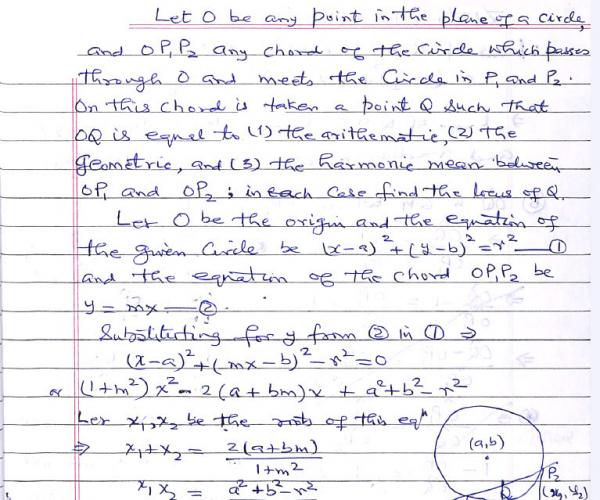 Let O be any point in the plane of a circle,
and OP₁P₂ any chord of the circle which passes
through O and meets the Circle in P₁ and P₂.
On this chord is taken a point Q such that
OQ is equal to (1) the arithematic, (2) the
geometric, and (3) the harmonic mean between
OP₁ and OP₂ ; in each case find the locus of Q.
Let O be the origin and the equation of
the given Circle be (x-a)² + (y-b)² = r² — ①
and the equation of the chord OP₁P₂ be
y = mx — ②.
Substituting for y from ② in ① ⇒
(x-a)² + (mx-b)² - r² = 0
or (1+m²) x² - 2(a+bm)x + a²+b²-r²
Let x₁, x₂ be the roots of this eqⁿ
⇒ x₁+x₂ = 2(a+bm) / 1+m²
(a,b)
P₂
x₁x₂ = a²+b²-r²
Q